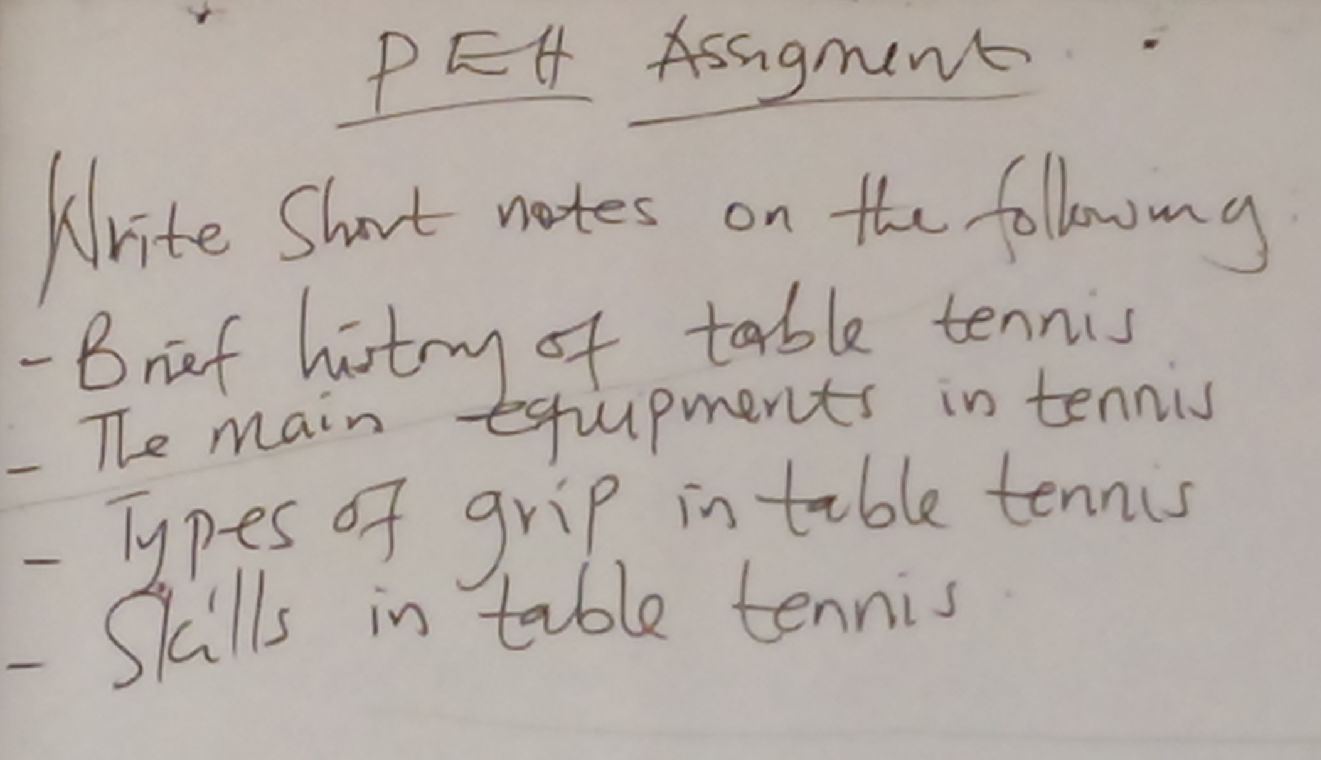 PEH Assigment
Write Short notes on the following
- Brief history of table tennis
- The main equipments in tennis
- Types of grip in table tennis
- Skills in table tennis.